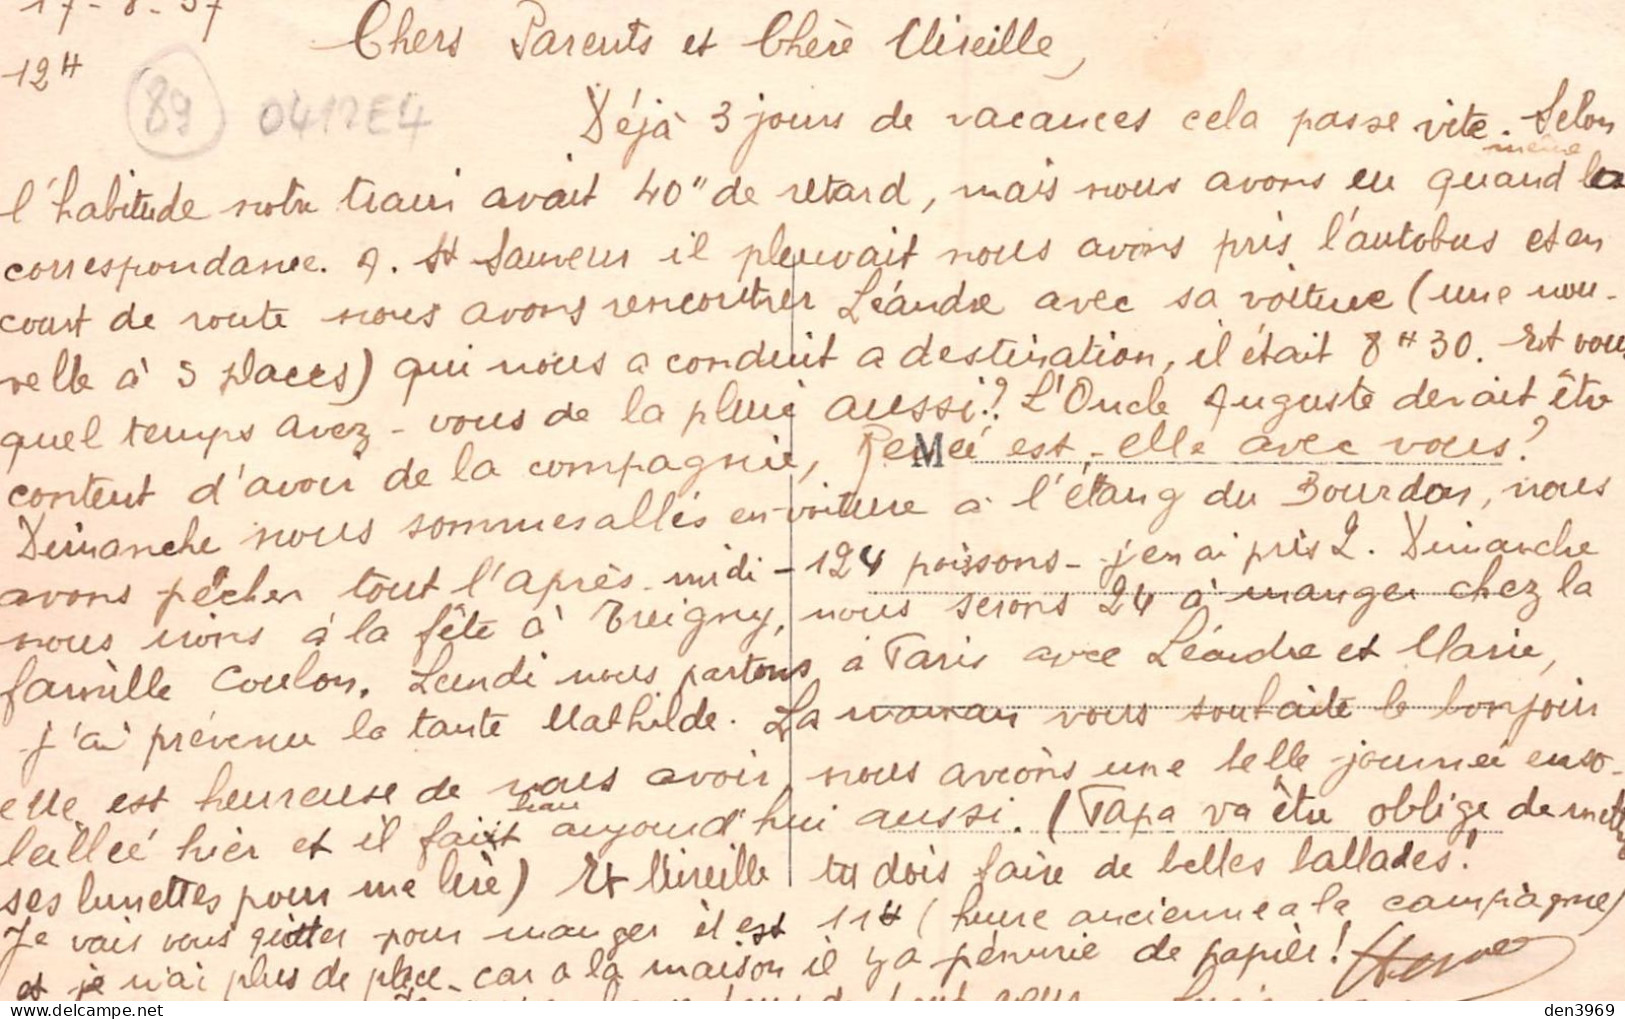 17-8-37
12H
89 0412E4
Chers Parents et Chère Mireille,
Déjà 3 jours de vacances cela passe vite. Selon
l'habitude notre train avait 40" de retard, mais nous avons eu quand même la
correspondance. A. St Sauveur il pleuvait nous avons pris l'autobus et en
court de route nous avons rencontrer Léandre avec sa voiture (une nou-
velle à 5 places) qui nous a conduit a destination, il était 8H30. Et vous
quel temps avez-vous de la pluie aussi? L'Oncle Auguste devait être
content d'avoir de la compagnie, est-elle avec vous?
Dimanche nous sommes allés en voiture à l'étang du Bourdon, nous
avons pêcher tout l'après-midi - 124 poissons - j'en ai pris 2. Dimanche
nous irons à la fête à Treigny, nous serons 24 à manger chez la
famille Coulon. Lundi nous partons à Paris avec Léandre et Marie,
j'ai prévenu la tante Mathilde. La maman vous souhaite le bonjour
elle est heureuse de nous avoir, nous avions une belle journée enso-
leillée hier et il fait beau aujourd'hui aussi. (Papa va être oblige de mettre
ses lunettes pour me lire) Et Mireille tu dois faire de belles ballades!
Je vais vous quitter pour manger il est 11H (heure ancienne a la campagne)
et je n'ai plus de place, car a la maison il y a pénurie de papier!
den3969